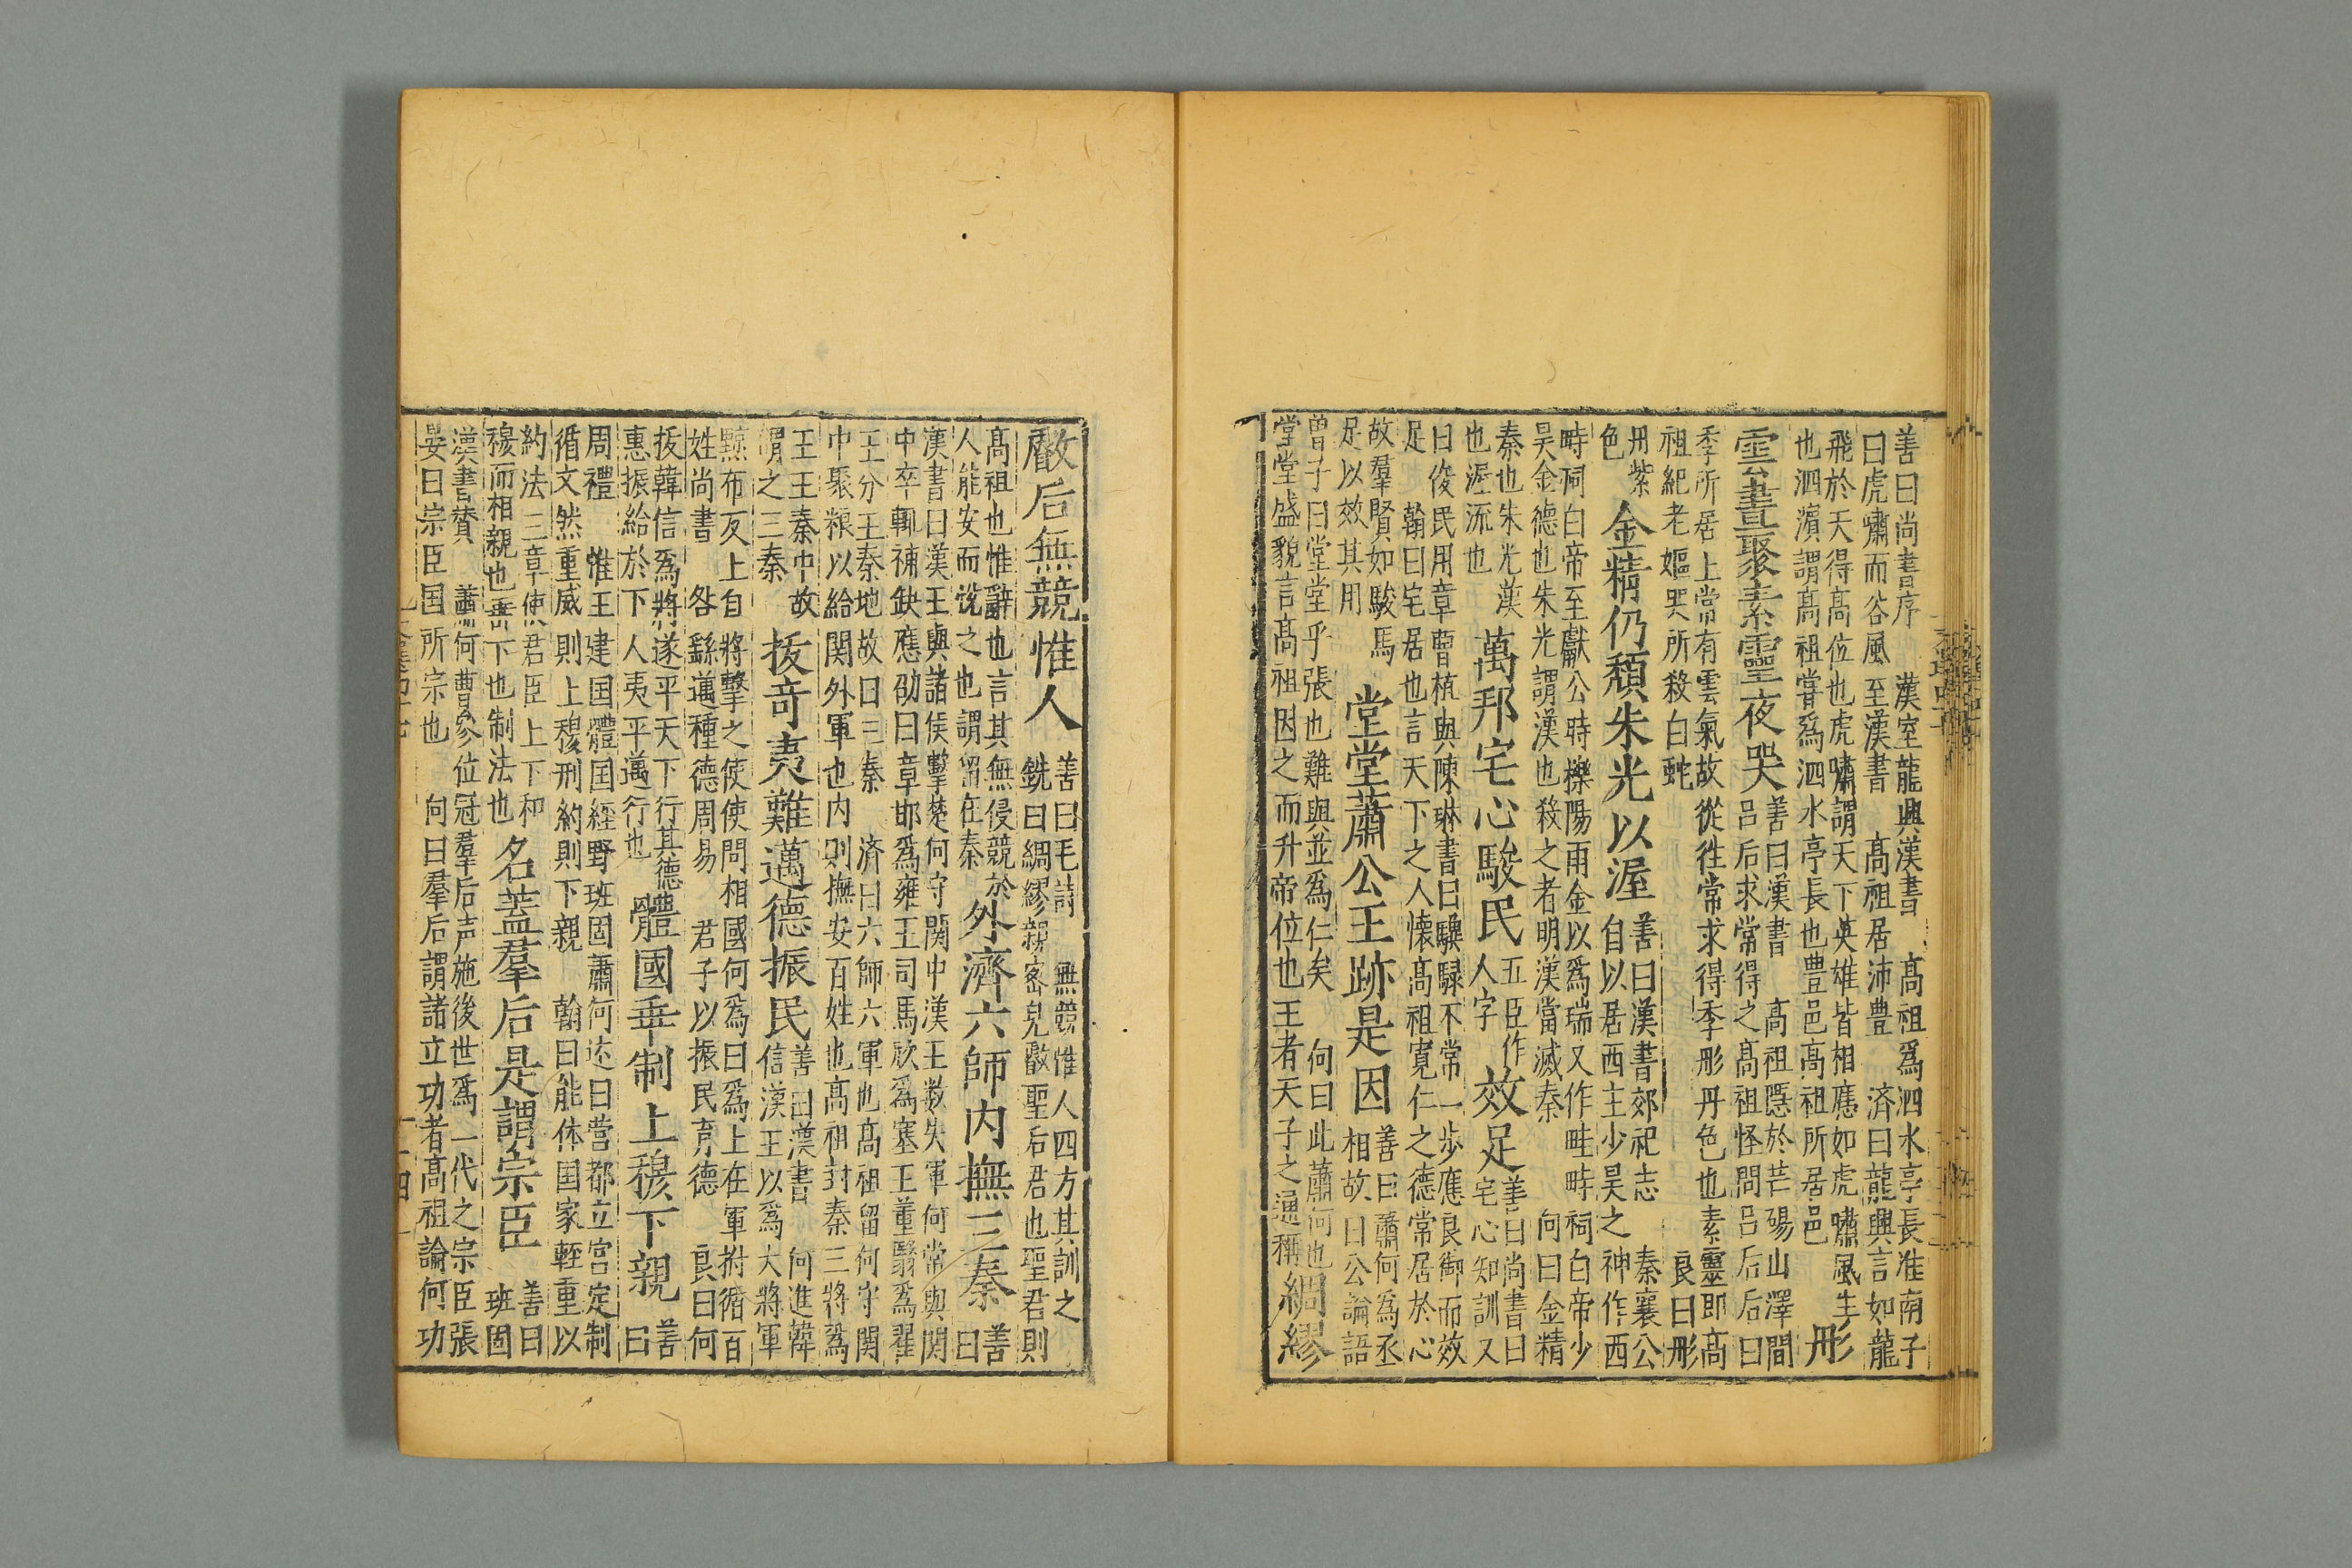 善曰尚書序 漢室龍興漢書 高祖爲泗水亭長淮南子
曰虎嘯而谷風至漢書 高祖居沛豊 済曰龍興言如龍
飛於天得高位也虎嘯謂天下英雄皆相應如虎嘯風生
也泗濵謂高祖嘗爲泗水亭長也豊邑高祖所居邑
彤
雲晝聚素靈夜哭
善曰漢書 高祖隱於芒碭山澤間
呂后求常得之高祖怪問呂后后曰
季所居上常有雲氣故從徃常求得季彤丹色也素靈即高
祖紀老嫗哭所殺白蛇 良曰彤
丹紫
色
金精仍頹朱光以渥
善曰漢書郊祀志 秦襄公
自以居西主少昊之神作西
畤祠白帝至獻公時櫟陽雨金以爲瑞又作畦畤祠白帝少
昊金德也朱光謂漢也殺之者明漢當滅秦 向曰金精
秦也朱光漢
也渥流也
萬邦宅心駿民
五臣作
人字
效足
善曰尚書曰
宅心知訓又
曰俊民用章曹植與陳琳書曰驥騄不常一歩應良御而效
足 翰曰宅居也言天下之人懐高祖寛仁之德常居於心
故羣賢如駿馬
足以效其用
堂堂蕭公王跡是因
善曰蕭何爲丞
相故曰公論語
曾子曰堂堂乎張也難與並爲仁矣 向曰此蕭何也
堂堂盛貌言高祖因之而升帝位也王者天子之通稱
綢繆
叡后無競惟人
善曰毛詩 無競惟人四方其訓之
銑曰綢繆親宻皃叡聖后君也聖君則
高祖也惟辭也言其無侵競於
人能安而恱之也謂留在秦
外濟六師内撫三秦
善
曰
漢書曰漢王與諸侯擊楚何守関中漢王数失軍何常興関
中卒輒補缺應劭曰章邯爲雍王司馬欣爲塞王董翳爲翟
王分王秦地故曰三秦 済曰六師六軍也高祖留何守関
中聚粮以給関外軍也内則撫安百姓也高祖封秦三將爲
王王秦中故
謂之三秦
拔竒夷難邁德振民
善曰漢書 何進韓
信漢王以爲大將軍
黥布反上自將擊之使使問相國何爲曰爲上在軍拊循百
姓尚書 咎繇邁種德周易 君子以振民育德 良曰何
拔韓信爲將遂平天下行其德
惠振給於下人夷平邁行也
體國垂制上穆下親
善
曰
周禮 惟王建国體国經野班固蕭何述曰営都立宫定制
循文然重威則上穆刑約則下親 翰曰能体国家輕重以
約法三章使君臣上下和
穆而相親也垂下也制法也
名蓋羣后是謂宗臣
善曰
班固
漢書賛 蕭何曹參位冠羣后声施後世爲一代之宗臣張
晏曰宗臣国所宗也 向曰羣后謂諸立功者高祖論何功